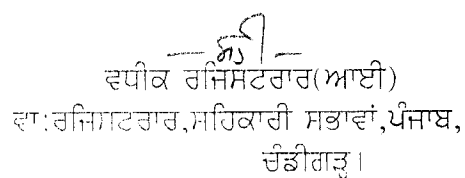 — ਸਹੀ —
ਵਧੀਕ ਰਜਿਸਟਰਾਰ(ਆਈ)
ਵਾ:ਰਜਿਸਟਰਾਰ,ਸਹਿਕਾਰੀ ਸਭਾਵਾਂ,ਪੰਜਾਬ,
ਚੰਡੀਗੜ੍ਹ।